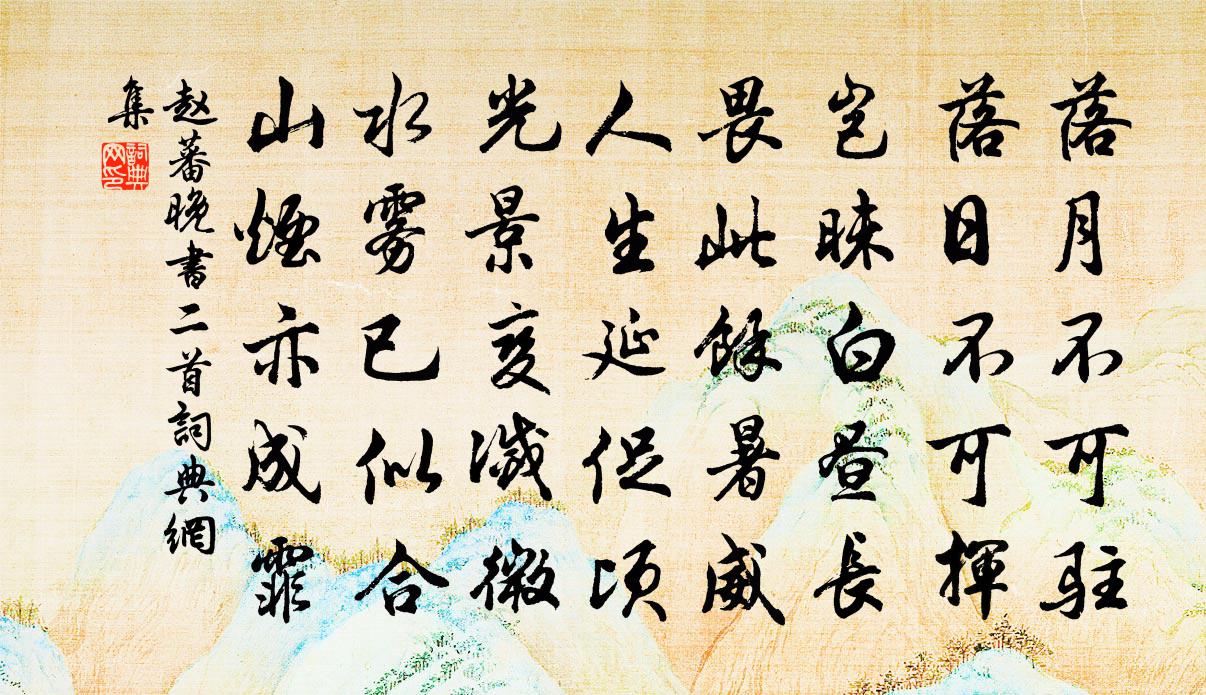 落月不可駐
落日不可揮
豈昧白昼長
畏此餘暑威
人生延促頃
光景変滅微
水雾已似合
山煙亦成霏
赵蕃晚書二首詞典網
集
詞典
网印